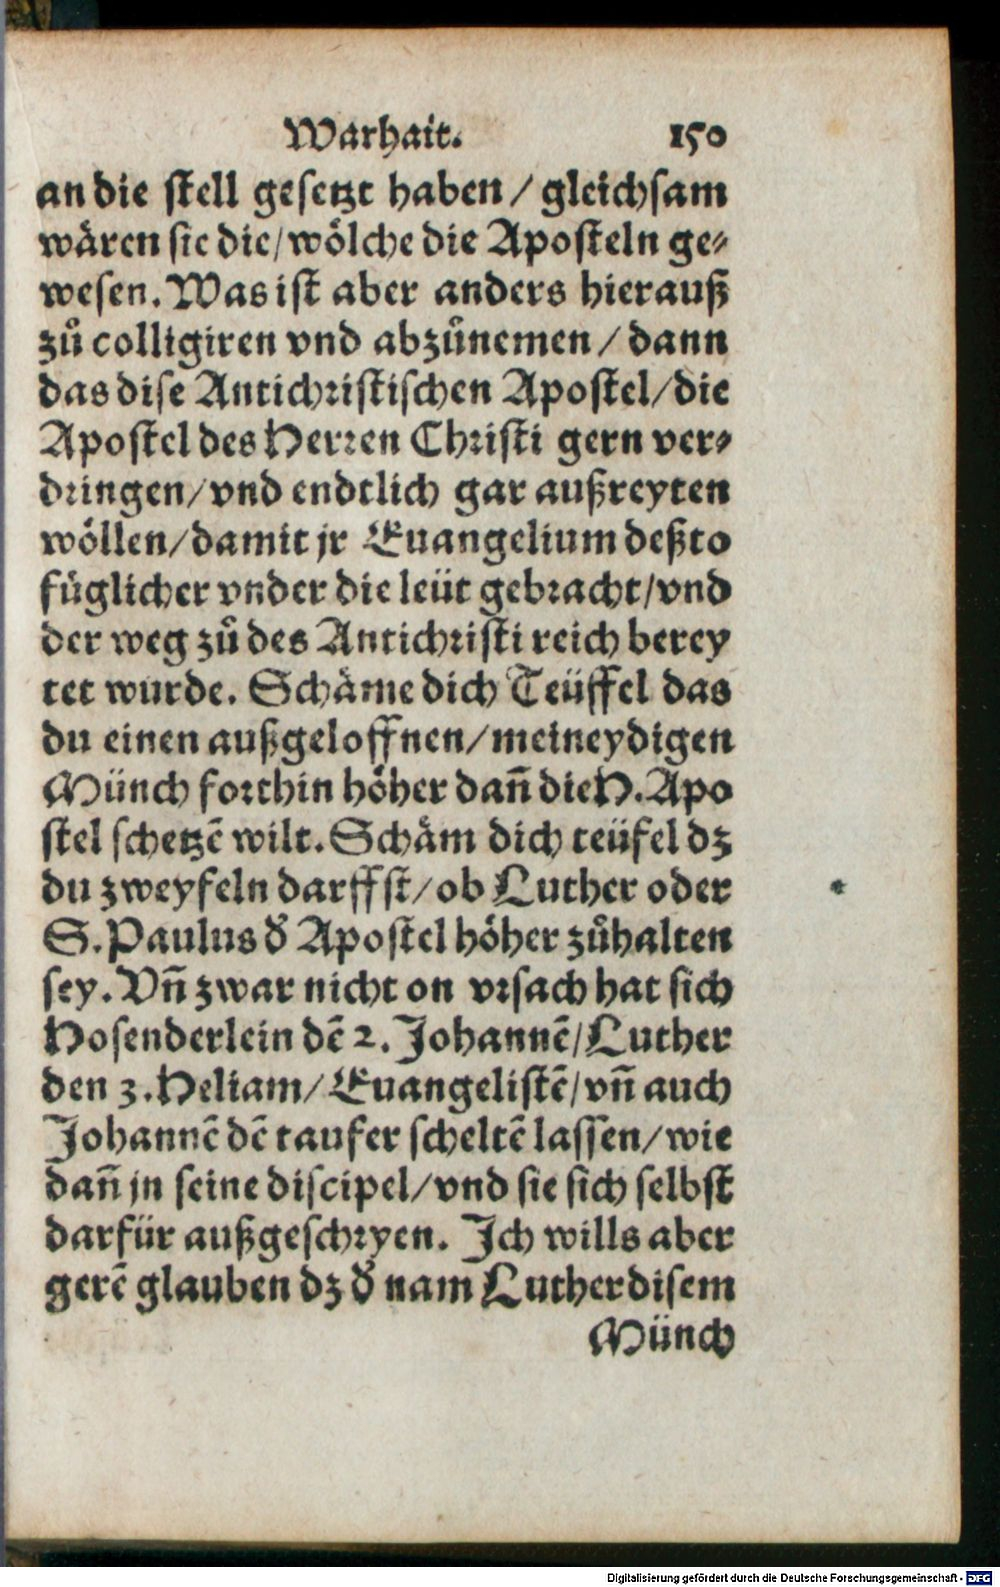 Warhait. 150
an die stell gesetzt haben / gleichsam
wären sie die / wölche die Aposteln ge⸗
wesen. Was ist aber anders hierauß
zů colligiren vnd abzůnemen / dann
das dise Antichristischen Apostel / die
Apostel des Herren Christi gern ver⸗
dringen / vnd endtlich gar außreyten
wöllen / damit jr Euangelium deßto
füglicher vnder die leüt gebracht / vnd
der weg zů des Antichristi reich berey
tet wurde. Schäme dich Teüffel das
du einen außgeloffnen / meineydigen
Münch forthin höher dañ die H. Apo
stel schetzē wilt. Schäm dich teüfel dz
du zweyfeln darffst / ob Luther oder
S. Paulus d̕ Apostel höher zůhalten
sey. Vñ zwar nicht on vrsach hat sich
Hosenderlein dē 2. Johannē / Luther
den 3. Heliam / Euangelistē / vñ auch
Johannē dē taufer scheltē lassen / wie
dañ jn seine discipel / vnd sie sich selbst
darfür außgeschryen. Ich wills aber
gerē glauben dz d̕ nam Luther disem
Münch
Digitalisierung gefördert durch die Deutsche Forschungsgemeinschaft - DFG